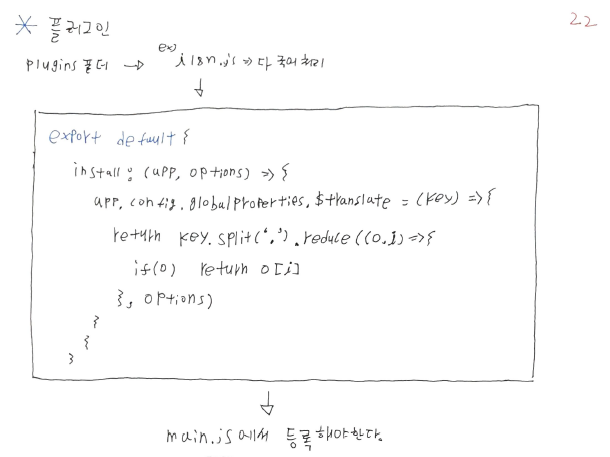 * 플러그인
22
plugins 폴더 → ex) i18n.js ⇒ 다국어처리
↓
export default {
install : (app, options) => {
app.config.globalProperties.$translate = (key) => {
return key.split('.').reduce((o,i) => {
if(o) return o[i]
}, options)
}
}
}
↓
main.js 에서 등록해야한다.